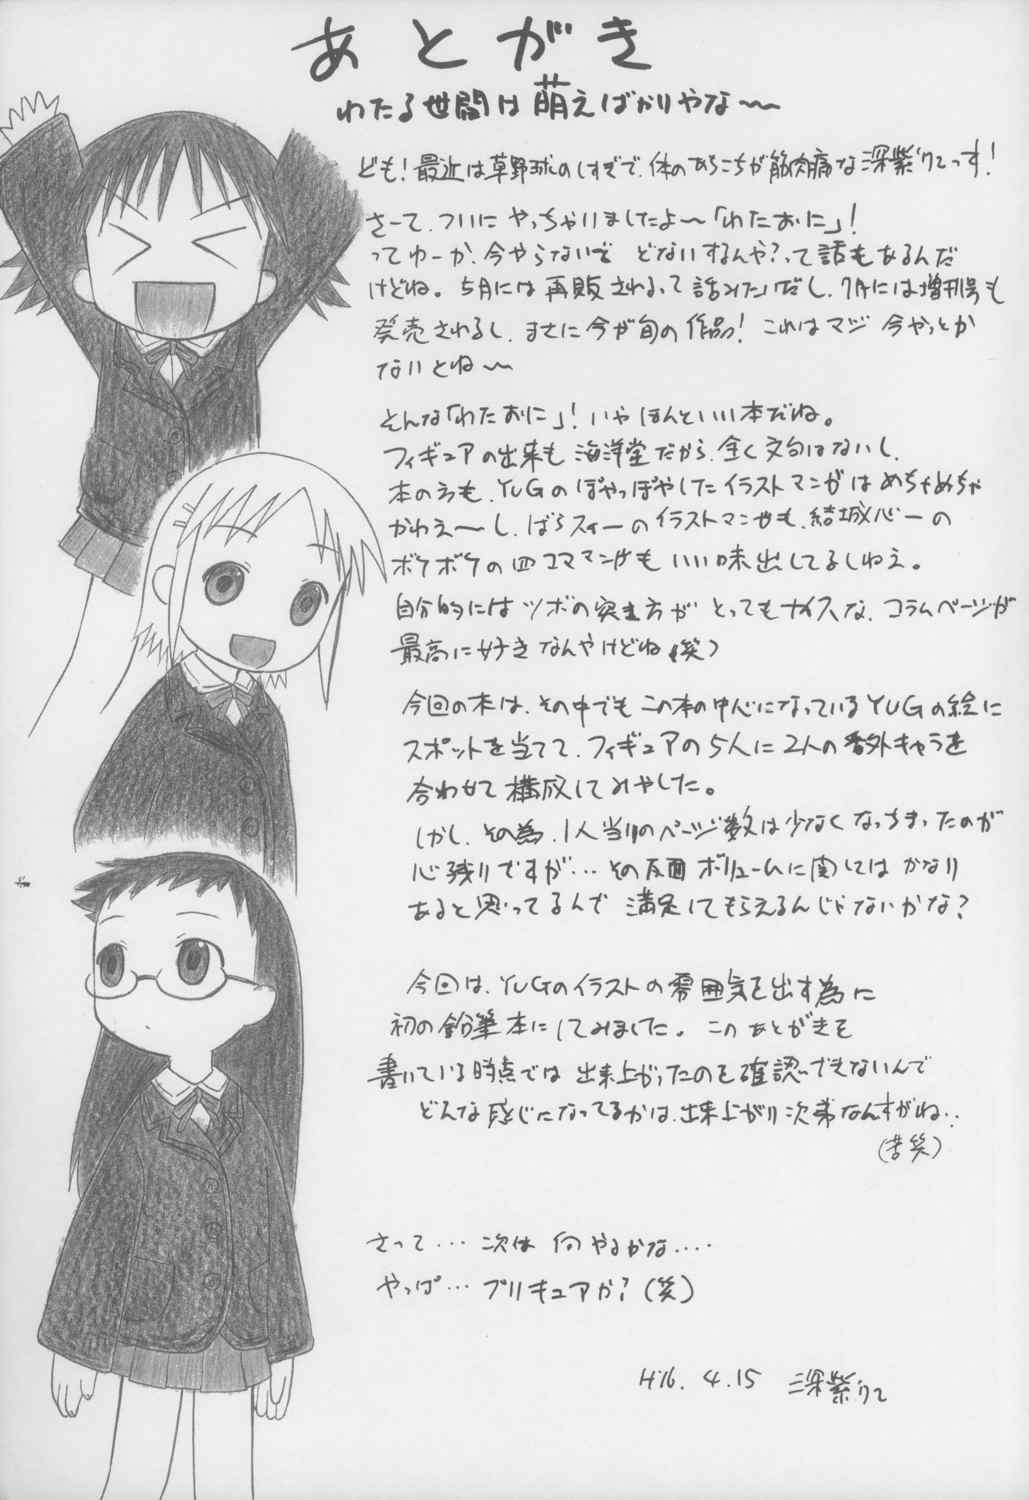 あとがき
わたる世間は萌えばかりやな〜
ども!最近は草野球のしすぎで、体のあちこちが筋肉痛な深紫りてっす!
さーて、ついにやっちゃいましたよ〜「わたおに」!
ってゆーか、今やらないで どないするんや?って話もあるんだ
けどね。5月には再販されるって話みたいだし、7月には増刊号も
発売されるし、まさに今が旬の作品!これはマジ 今やっとか
ないとね〜
そんな「わたおに」!いや ほんといい本だね。
フィギュアの出来も 海洋堂だから、全く文句はないし、
本の方も、YUGのぽやっぽやしたイラストマンガはめちゃめちゃ
かわえ〜し、ばらスィーのイラストマンガも、結城心一の
ボケボケの四コママンガもいい味出してるしねえ。
自分的にはツボの突き方が とってもナイスな、コラムページが
最高に好きなんやけどね(笑)
今回の本は、その中でもこの本の中心になっているYUGの絵に
スポットを当てて、フィギュアの5人に2人の番外キャラを
合わせて構成してみやした。
しかし、その為、1人当りのページ数は少なくなっちまったのが
心残りですが…その反面ボリュームに関してはかなり
あると思ってるんで 満足してもらえるんじゃないかな?
今回は、YUGのイラストの雰囲気を出す為に
初の鉛筆本にしてみました。このあとがきを
書いている時点では 出来上がったのを確認できないんで
どんな感じになってるかは、出来上がり次第なんすがね‥
(苦笑)
さって…次は 何やるかな‥‥
やっぱ…プリキュアか?(笑)
H16. 4.15 深紫りて